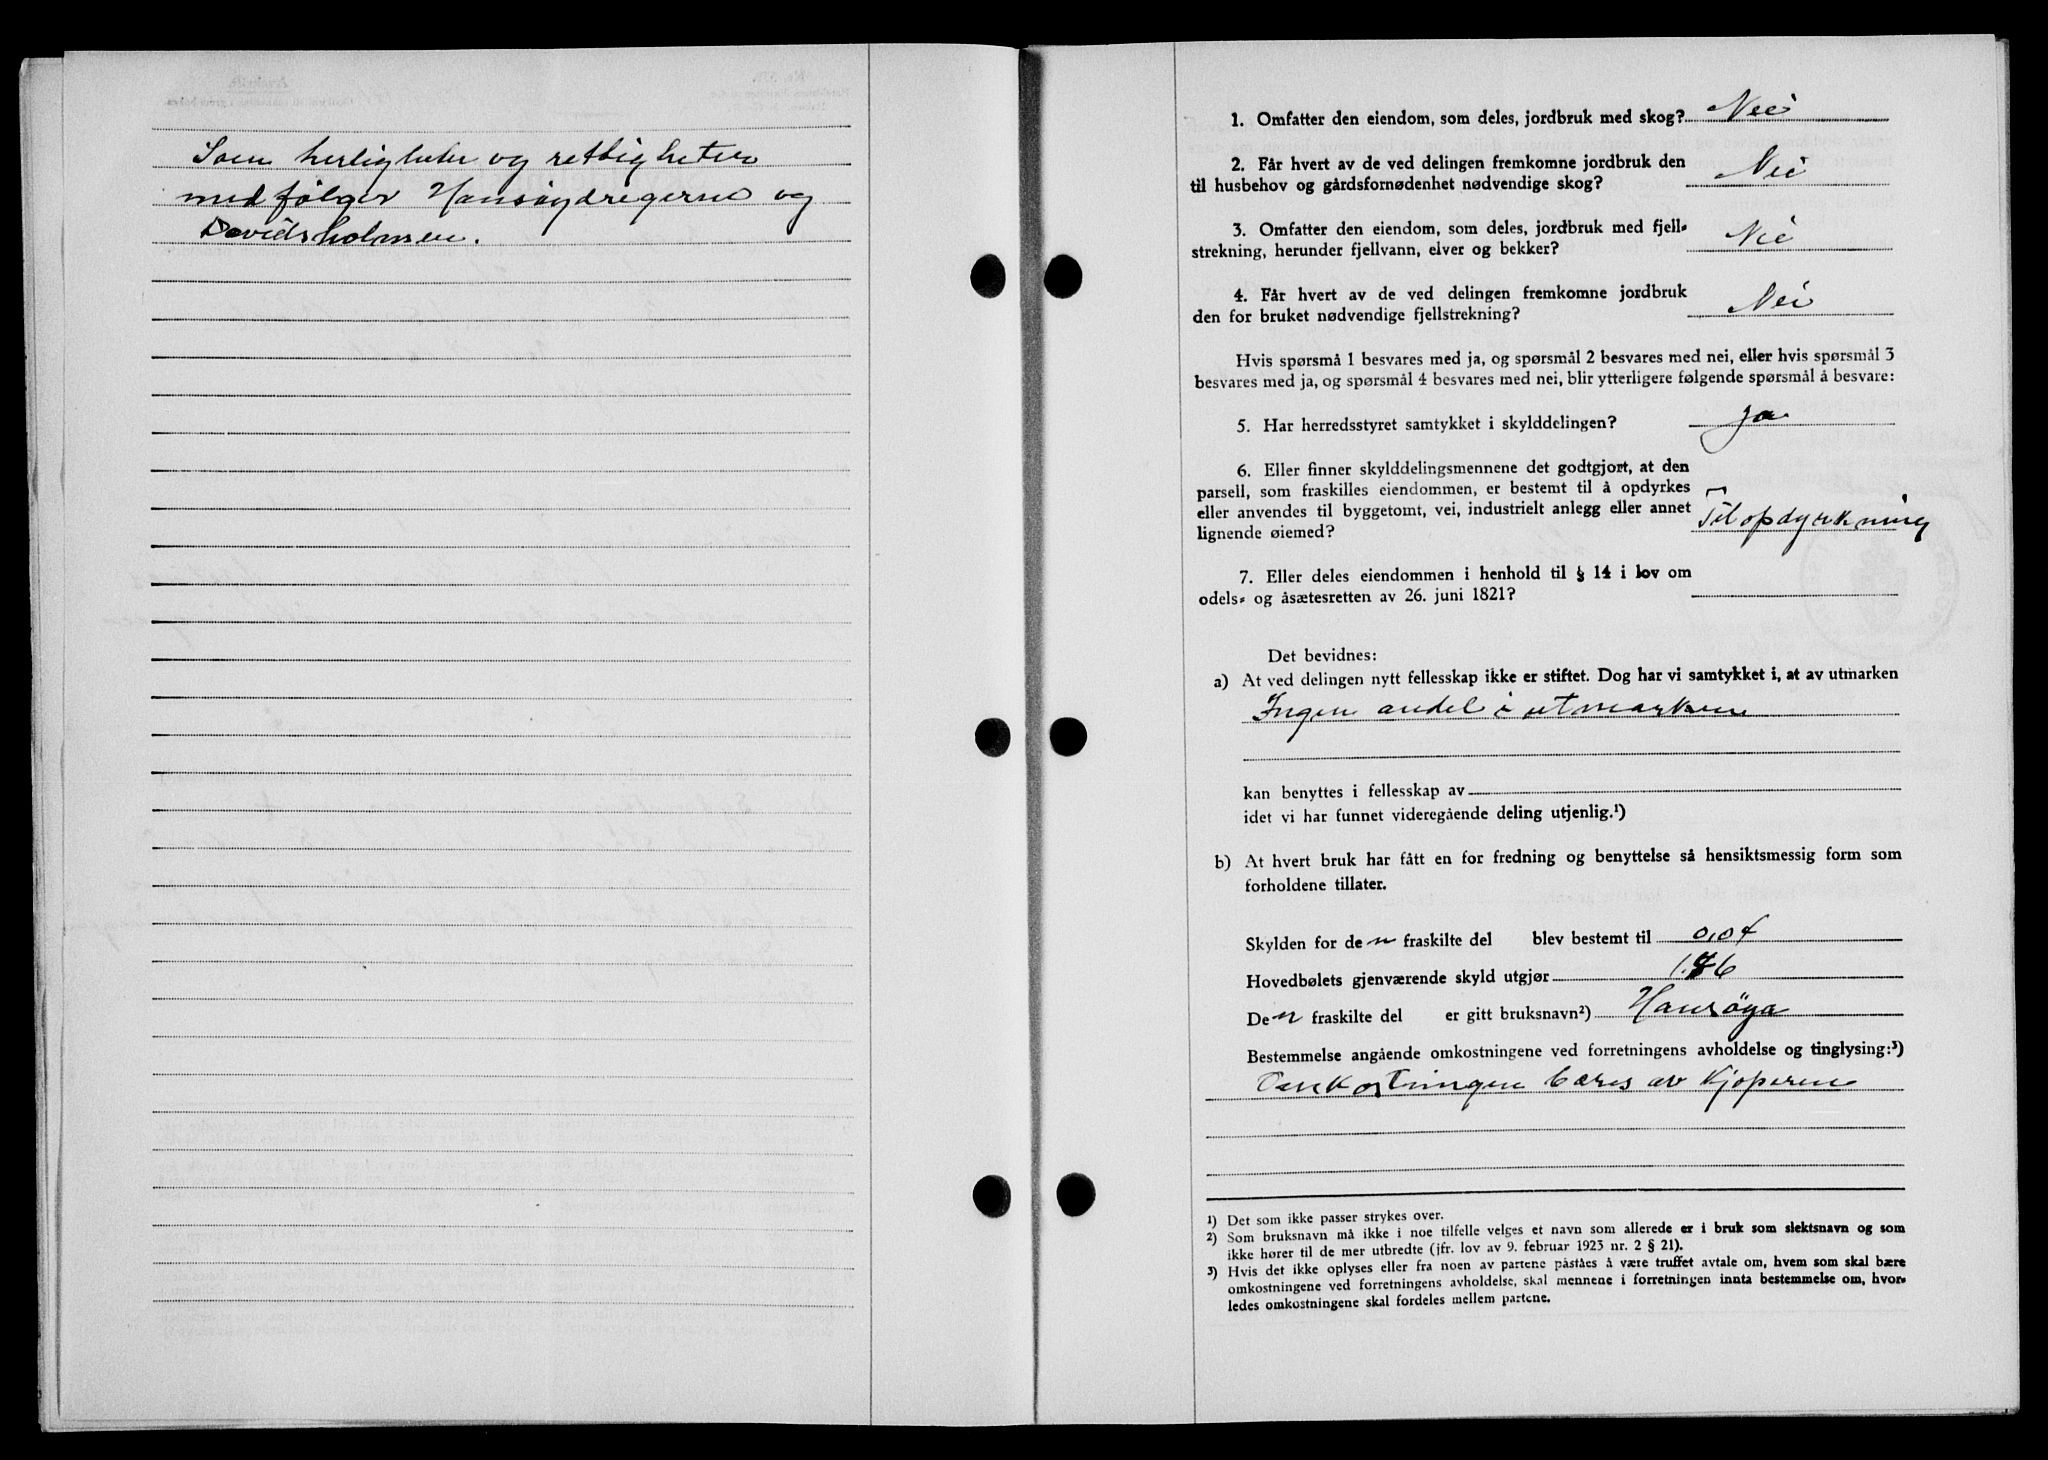 Som herligheter og rettigheter
medfølger Hansøydregerne og
Davidsholmen.
1. Omfatter den eiendom, som deles, jordbruk med skog? Nei
2. Får hvert av de ved delingen fremkomne jordbruk den
til husbehov og gårdsfornødenhet nødvendige skog? Nei
3. Omfatter den eiendom, som deles, jordbruk med fjell-
strekning, herunder fjellvann, elver og bekker? Nei
4. Får hvert av de ved delingen fremkomne jordbruk
den for bruket nødvendige fjellstrekning? Nei
Hvis spørsmå 1 besvares med ja, og spørsmål 2 besvares med nei, eller hvis spørsmål 3
besvares med ja, og spørsmål 4 besvares med nei, blir ytterligere følgende spørsmål å besvare:
5. Har herredsstyret samtykket i skylddelingen? Ja
6. Eller finner skylddelingsmennene det godtgjort, at den
parsell, som fraskilles eiendommen, er bestemt til å opdyrkes
eller anvendes til byggetomt, vei, industrielt anlegg eller annet
lignende øiemed? Til opdyrkning
7. Eller deles eiendommen i henhold til § 14 i lov om
odels- og åsætesretten av 26. juni 1821?
Det bevidnes:
a) At ved delingen nytt fellesskap ikke er stiftet. Dog har vi samtykket i, at av utmarken
Ingen andel i utmarken
kan benyttes i fellesskap av
idet vi har funnet videregående deling utjenlig.¹)
b) At hvert bruk har fått en for fredning og benyttelse så hensiktsmessig form som
forholdene tillater.
Skylden for den fraskilte del blev bestemt til 0,04
Hovedbølets gjenværende skyld utgjør
Den fraskilte del er gitt bruksnavn²) Hansøya
Bestemmelse angående omkostningene ved forretningens avholdelse og tinglysing:³)
Omkostningen bæres av Kjøperen
¹) Det som ikke passer strykes over.
²) Som bruksnavn må ikke i noe tilfelle velges et navn som allerede er i bruk som slektsnavn og som
ikke hører til de mer utbredte (jfr. lov av 9. februar 1923 nr. 2 § 21).
³) Hvis det ikke oplyses eller fra noen av partene påstås å være truffet avtale om, hvem som skal bære
omkostningene ved forretningens avholdelse, skal mennene i forretningen innta bestemmelse om, hvor-
ledes omkostningene skal fordeles mellem partene.